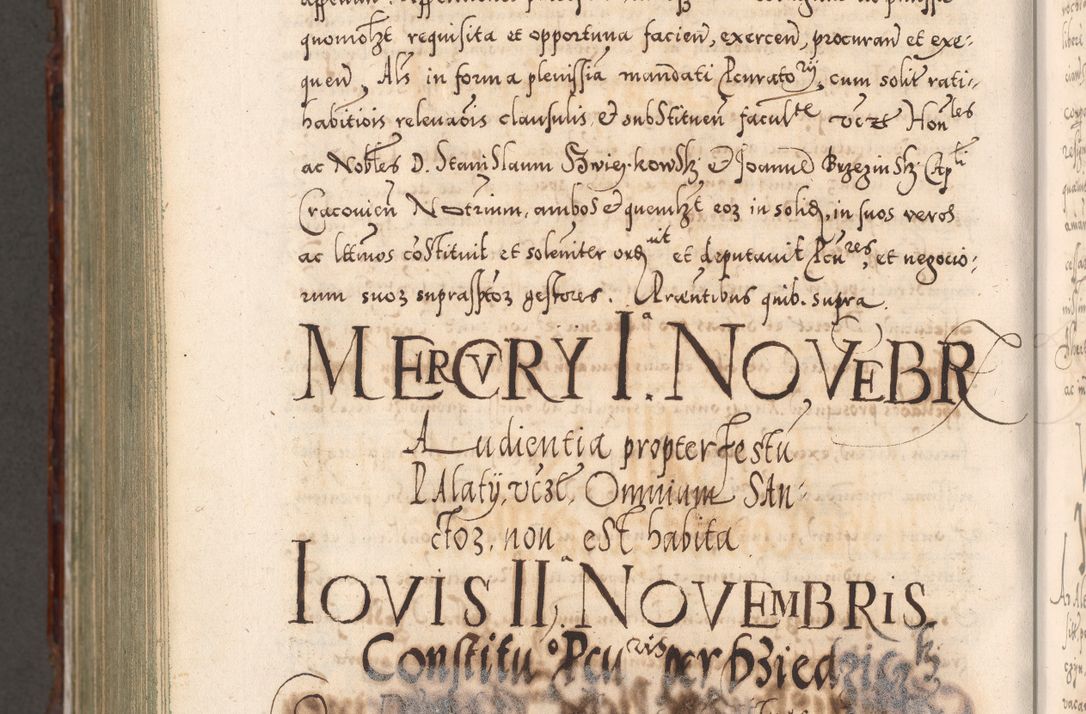 quomolzt requisita et opportuna facien, exercen, procuran et exe:
quen, Als in forma plenissia mandati Pcuratory, cum solit rati-
habitiois relevaois clausulis, et substituen facultte vczt Honles
ac Nobles D. Stanislaum Zwierzkowskj et Joanne Brzezinskj Capli
Cracovien Notrium, ambos et quemlzt eoz in solid, in suos veros
ac lttimos costituit et soleniter ordit et deputavit Pcures, et negocio:
rum suoz suprasptoz gestores. Praesentibus quib. supra.
MERCVRY Ia. NOVEBR
Audientia propter Festu
PAlatij, vczt, Omnium SAn-
ctoz. non est habita
IOVIS IIa. NOVEMBRIS.
Constituo Pcuris per